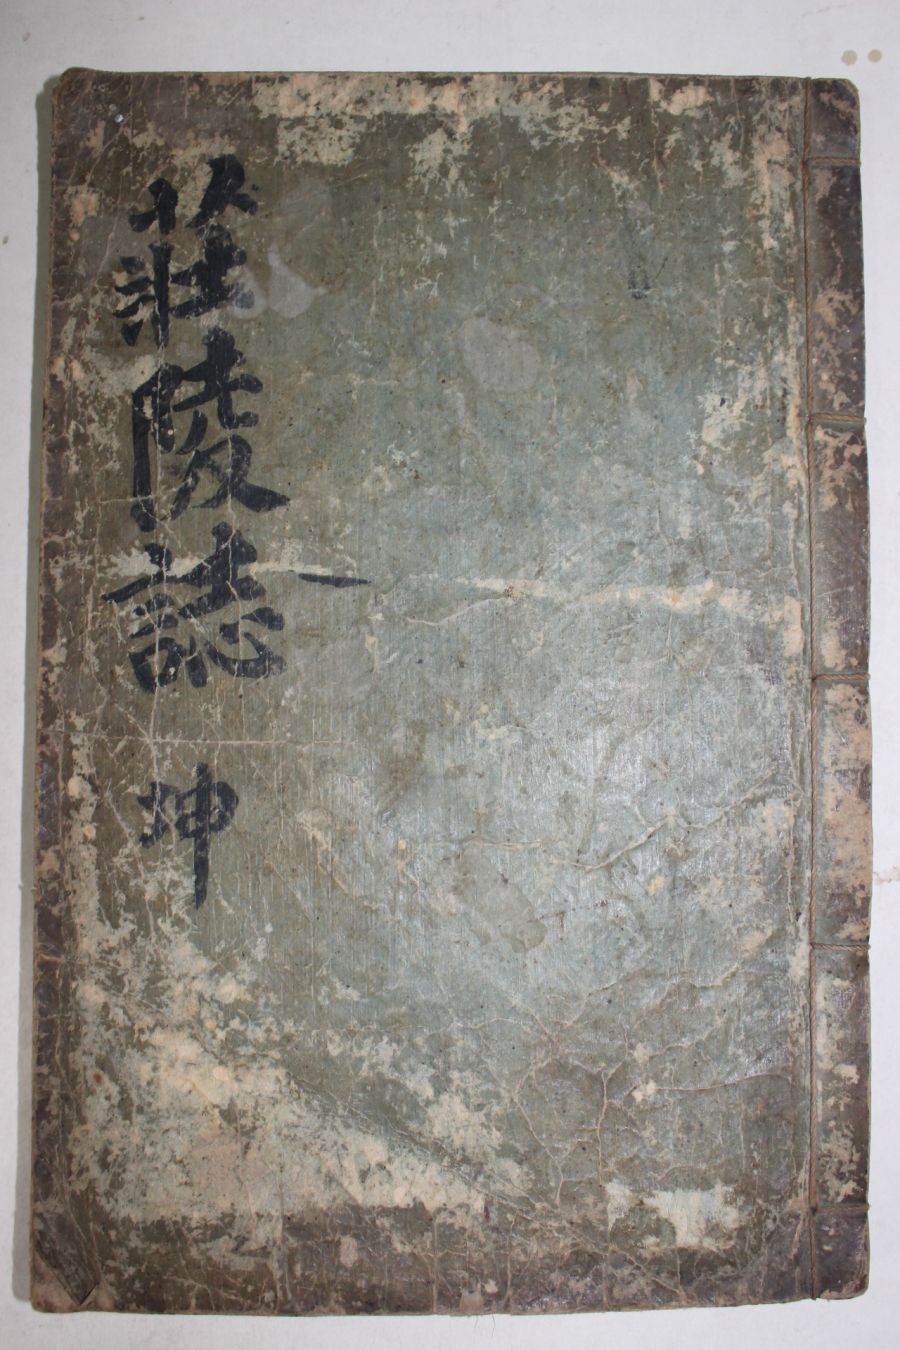 莊陵誌 坤